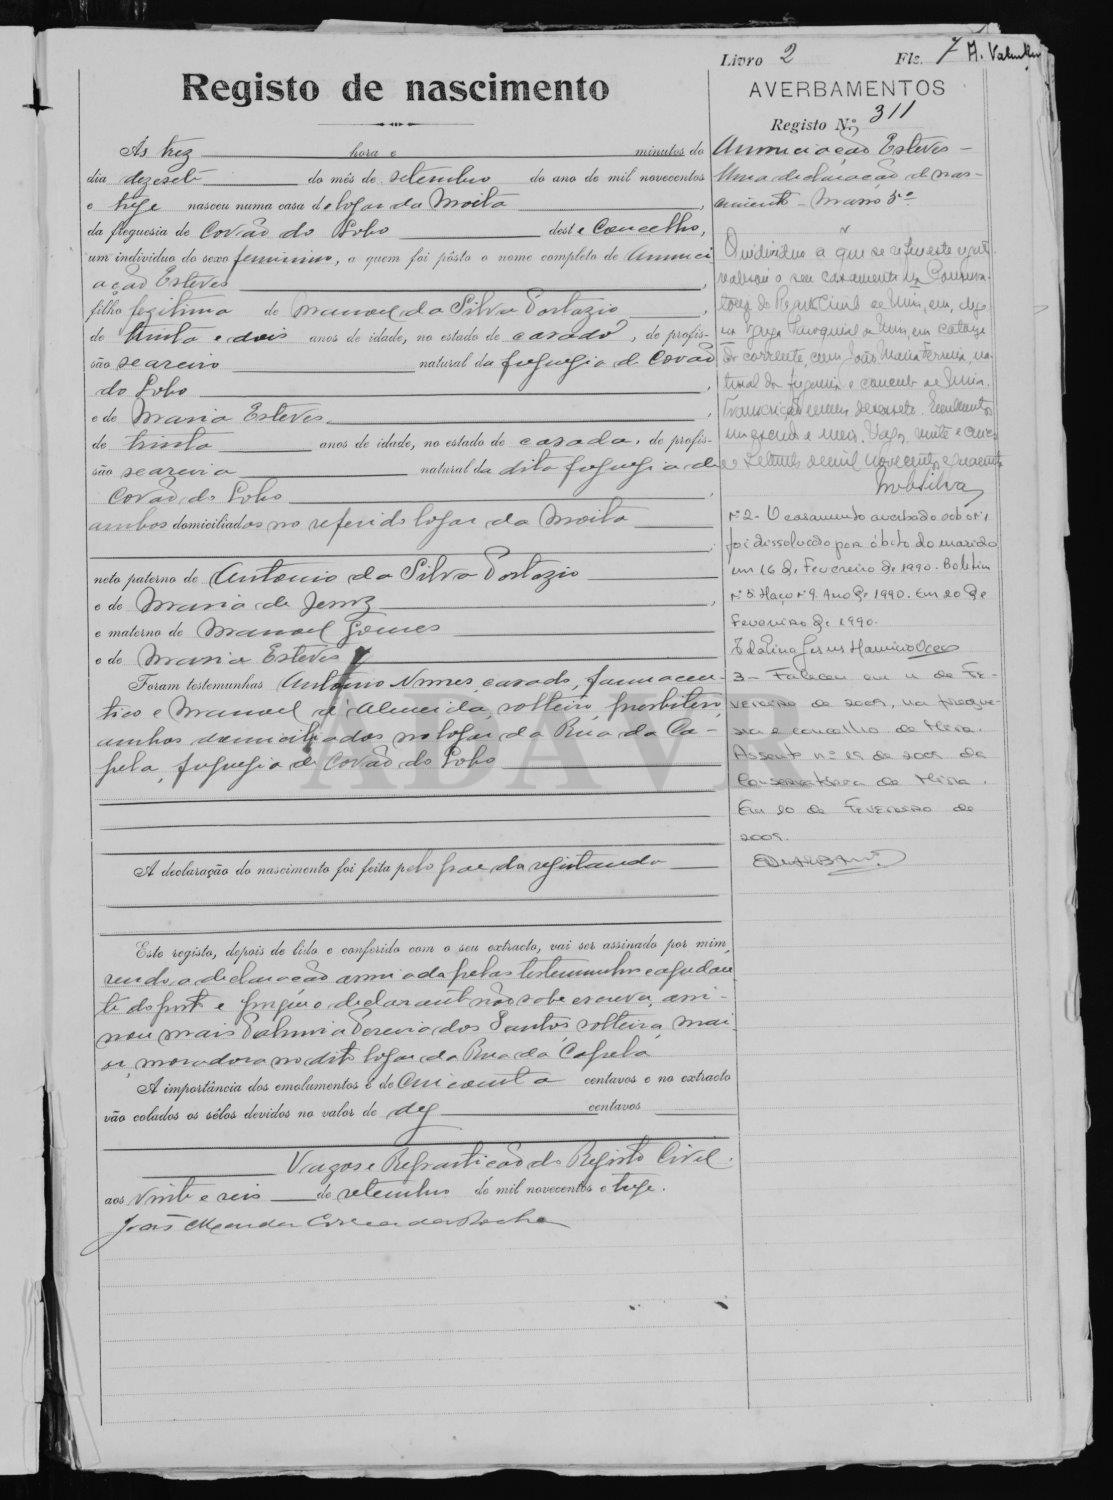 Livro 2 Fls. 7
Registo de nascimento
AVERBAMENTOS
Registo N.º 311
Às trez hora e minutos do
dia dezesete do mês de setembro do ano de mil novecentos
e treze nasceu numa casa do logar da Moita,
da freguesia de Covão do Lobo deste Concelho,
um individuo do sexo feminino, a quem foi pôsto o nome completo de Anunci
ação Esteves,
filho legitima de Manoel da Silva Portazio,
de trinta e dois anos de idade, no estado de casado, de profis-
são seareiro natural da freguezia de Covão
do Lobo,
e de Maria Esteves,
de trinta anos de idade, no estado de casada, de profis-
são seareira natural da dita freguezia de
Covão do Lobo,
ambos domiciliados no referido logar da Moita
neto paterno de Antonio da Silva Portazio
e de Maria de Jesuz,
e materno de Manoel Gomes
e de Maria Esteves
Foram testemunhas Antonio Nunes, casado, farmaceu-
tico e Manoel d'Almeida, solteiro, presbitero,
ambos domiciliados no logar da Rua da Ca-
pela, freguezia de Covão do Lobo
A declaração do nascimento foi feita pelo pae da registanda
Este registo, depois de lido e conferido com o seu extracto, vai ser assinado por mim,
sendo a declaração assinada pelas testemunhas e ajudan
te do posto e porque o declarante não sabe escrever, assi-
nou mais Palmira Pereira dos Santos, solteira, mai-
or, moradora no dito logar da Rua da Capela
A importância dos emolumentos é de cincoenta centavos e no extracto
vão colados os sêlos devidos no valor de dez centavos
Vagos e Repartição do Registo Civil.
aos vinte e seis de setembro de mil novecentos e treze.
Anunciação Esteves -
Uma declaração de nas-
cimento - Maço 3º
O individuo a que se refere este
realisou o seu casamento na Conserva-
toria do Registo Civil de Mira, em
Igreja Paroquial de Mira, em catorze
do corrente, com João Maria Ferreira, na-
tural da freguesia e concelho de Mira.
um escudo e meio. Vagos, vinte e cinco
de mil novecentos e quarenta
Nº 2 - O casamento averbado sob o nº 1
foi dissolvido por óbito do marido
em 16 de Fevereiro de 1990. Boletim
nº 5. Maço nº 9. Ano de 1990. Em 20 de
Fevereiro de 1990.
3 - Faleceu em 11 de Fe-
vereiro de 2009, na fregue-
sia e concelho de Mira.
Assento nº 19 de 2009 da
Conservatória de Mira.
Em 20 de Fevereiro de
2009.
ADAVR